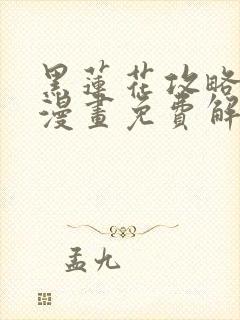 黑蓮花攻略
漫畫免費解
孟九